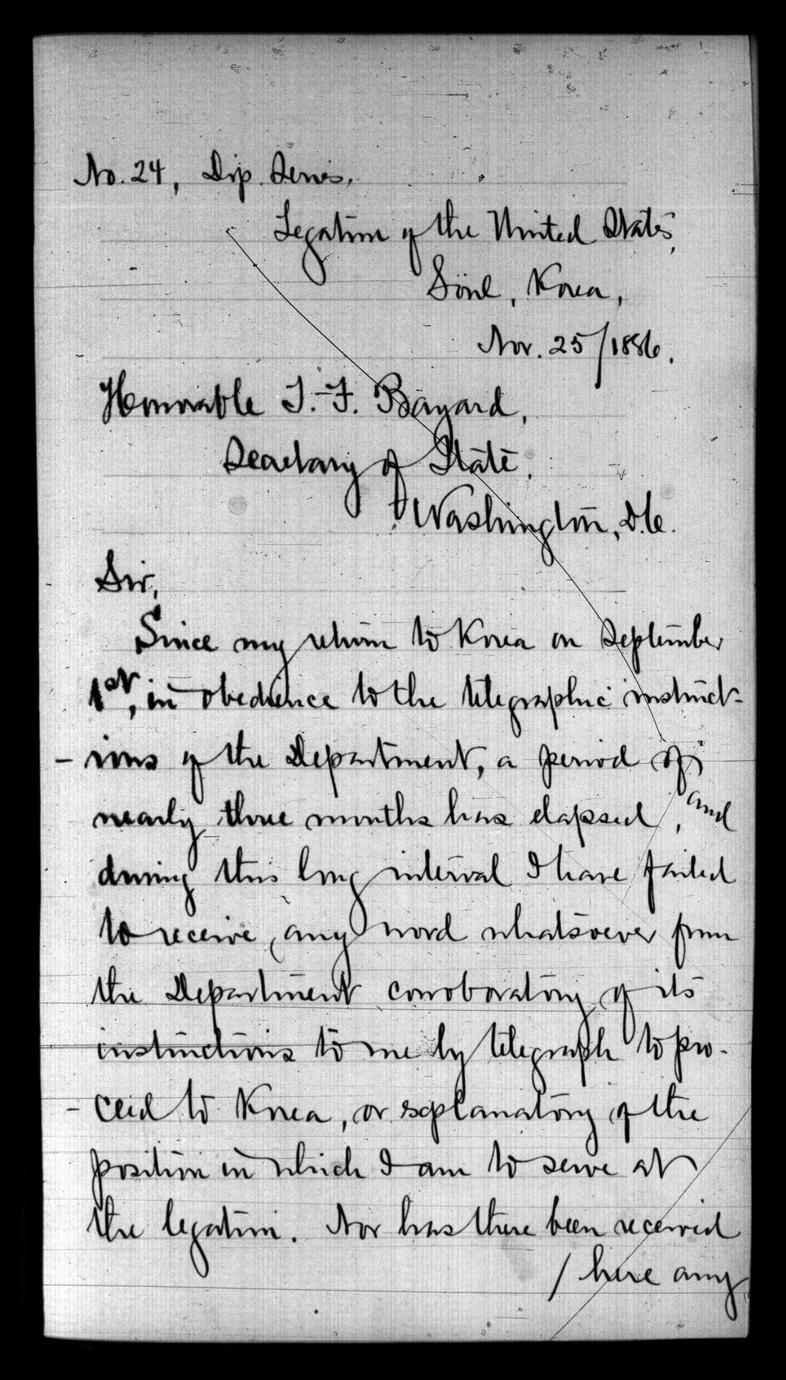 No. 24, Dip. Series.
Legation of the United States,
Söul, Korea,
Nov. 25/1886.
Honorable T. F. Bayard,
Secretary of State,
Washington, D.C.
Sir,
Since my return to Korea on September
1st, in obedience to the telegraphic instruct-
-ions of the Department, a period of
nearly three months has elapsed, and
during this long interval I have failed
to receive any word whatsoever from
the Department corroboratory of its
instructions to me by telegraph to pro-
-ceed to Korea, or explanatory of the
position in which I am to serve at
the legation. Nor has there been received
/ here any